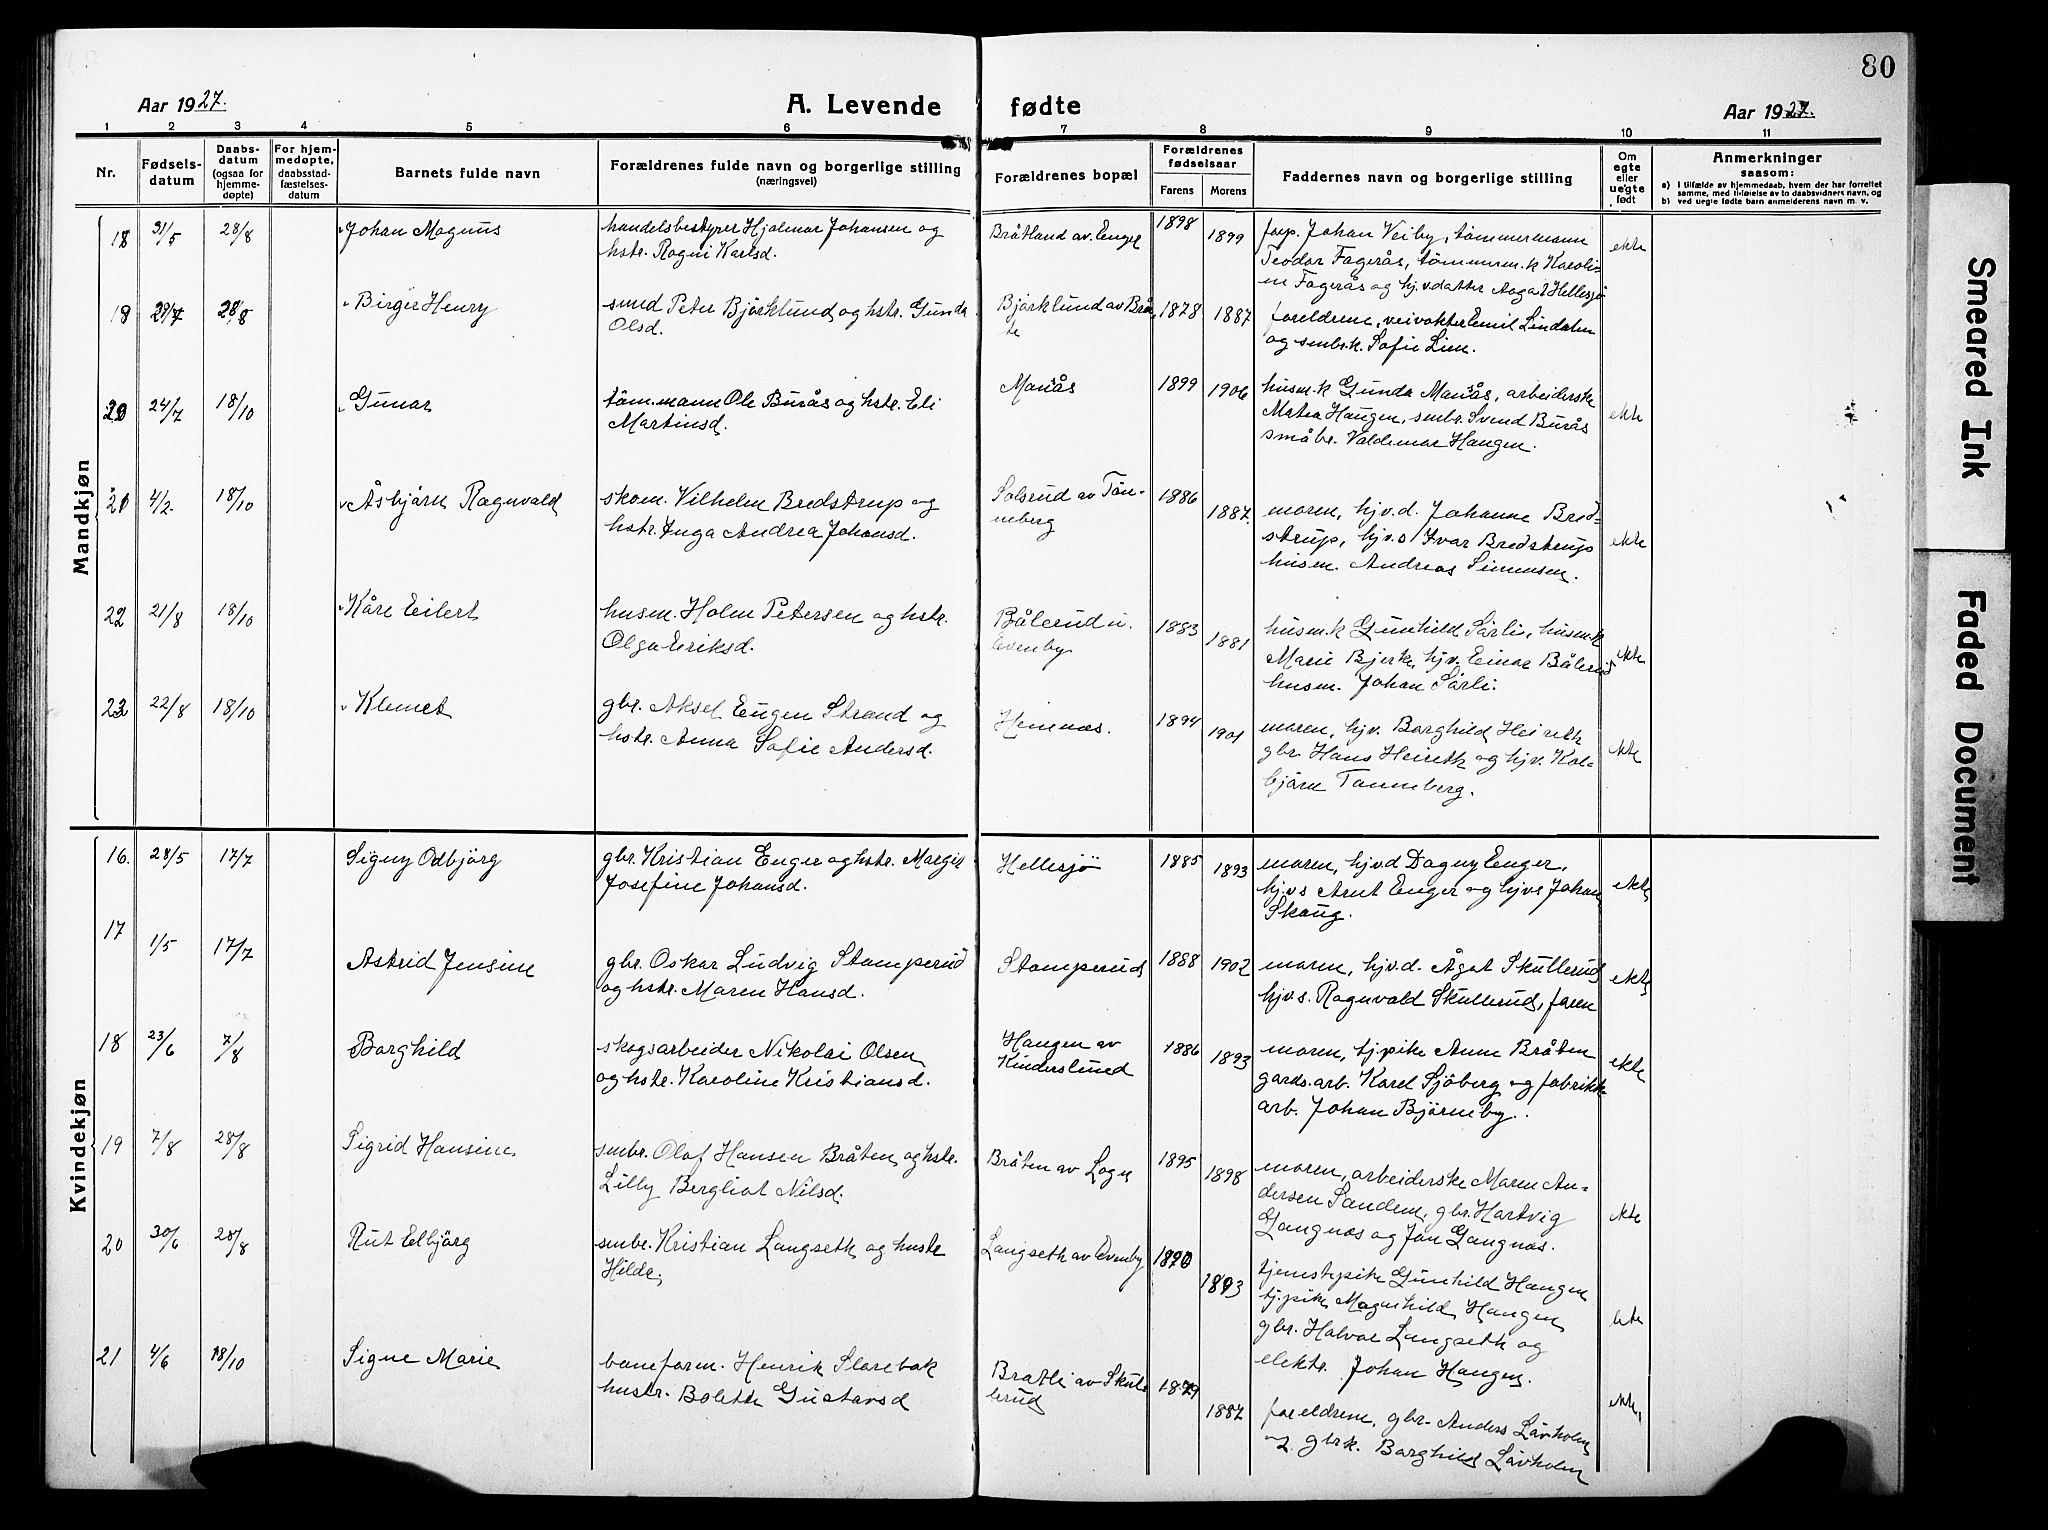 80
Aar 1927.
A. Levende fødte
Aar 1927.
1 2 3 4 5 6 7 8 9 10 11
Nr.
Fødsels-
datum
Daabs-
datum
(ogsaa for
hjemme-
døpte)
For hjem-
medøpte,
daabsstad-
fæstelses-
datum
Barnets fulde navn
Forældrenes fulde navn og borgerlige stilling
(næringsvei)
Forældrenes bopæl
Forældrenes
fødselsaar
Farens Morens
Faddernes navn og borgerlige stilling
Om
egte
eller
uegte
født
Anmerkninger
saasom:
a) I tilfælde av hjemmedaab, hvem der har forrettet
samme, med tilføielse av to daabsvidners navn, og
b) ved uegte fødte barn anmelderens navn m. v.
Mandkjøn
18 31/5 28/8 Johan Magnus
handelsbestyrer Hjalmar Johansen og
hstr. Ragni Karlsd.
Bråtland av Enger 1898 1899
forp. Johan Veiby, tömmermann
Teodor Fagerås, tömmerm.k Karoli-
ne Fagerås og hj.v.datter Aagot Hellesjö
ekte
19 29/7 28/8 Birger Henry
smed Peter Björklund og hstr. Gunda
Olsd.
Björklund av Brå-
te
1878 1887
foreldrene, veivokter Emil Lindalen
og smbr.k. Sofie Lien.
20 24/7 18/10 Gunar
töm.mann Ole Burås og hstr. Eli
Martinsd.
Manås 1899 1906
husm.k Gunda Manås, arbeiderske
Matea Haugen, smbr. Svend Burås
småbr. Valdemar Haugen.
ekte
21 4/2. 18/10 Åsbjörn Ragnvald
skom. Vilhelm Bredstrup og
hstr. Inga Andrea Johansd.
Solsrud av Tön-
neberg
1886 1887.
moren, hjv.d. Johanne Bred-
strup, hjv.s Ivar Bredstrup
husm. Andreas Simensen.
ekte
22 21/8 18/10 Kåre Eilert
husm. Holm Petersen og hstr.
Olga Eriksd.
Bålerud u.
Evenby
1883 1881
husm.k Gunhild Sörli, husm.k
Marie Bjerke, hjv. Einar Bålerud
husm. Johan Sörli.
ekte
23 22/8 18/10 Klemet
gbr. Aksel Eugen Strand og
hstr. Anna Sofie Andersd.
Hemnes. 1894 1901
moren, hjv. Borghild Heireth
gbr. Hans Heireth og hjv. Kol-
björn Tønneberg.
ekte
Kvindekjøn
16. 28/5 17/7 Signy Odbjörg
gbr. Kristian Enger og hstr. Margit
Josefine Johansd.
Hellesjö 1885 1893
moren, hjv.d Dagny Enger,
hjv.s Arnt Enger og hjvs Johan
Skaug.
ekte
17 1/5 17/7 Astrid Jensine
gbr. Oskar Ludvig Stamperud
og hstr. Maren Hansd.
Stamperud 1888 1902
moren, hjv.d. Ågot Skullerud
hjv.s. Ragnvald Skullerud, faren
ekte
18 23/6 7/8 Borghild
skogsarbeider Nikolai Olsen
og hstr. Karoline Kristiansd.
Haugen av
Kinderslund
1886 1893
moren, tj.pike Anne Bråten
gards.arb. Karel Sjöberg og fabrikk-
arb. Johan Björneby.
ekte
19 7/8 28/8 Sigrid Hansine
smbr. Olaf Hansen Bråten og hstr.
Lilly Bergliot Nilsd.
Bråten av Logn 1895 1898
moren, arbeiderske Maren An-
dersen Sandem, gbr. Hartvig
Gangnæs og Jon Gangnæs.
ekte
20 30/6 28/8 Rut Elbjörg
smbr. Kristian Langseth og hustr
Hilda
Langseth av Evenby 1890 1893
tjenstepike Gunhild Haugen
tj.pike Magnhild Haugen
gbr. Halvor Langseth og
elektr. Johan Haugen.
ekte
21 4/6 18/10 Signe Marie
baneform. Henrik Slorebak
hustr. Bolette Gustavsd
Bratli av Skul-
lerud
1879 1887
foreldrene, gbr. Anders Lövholm
og gbr.k. Borghild Lövholm
ekte
Smeared Ink
Faded Document